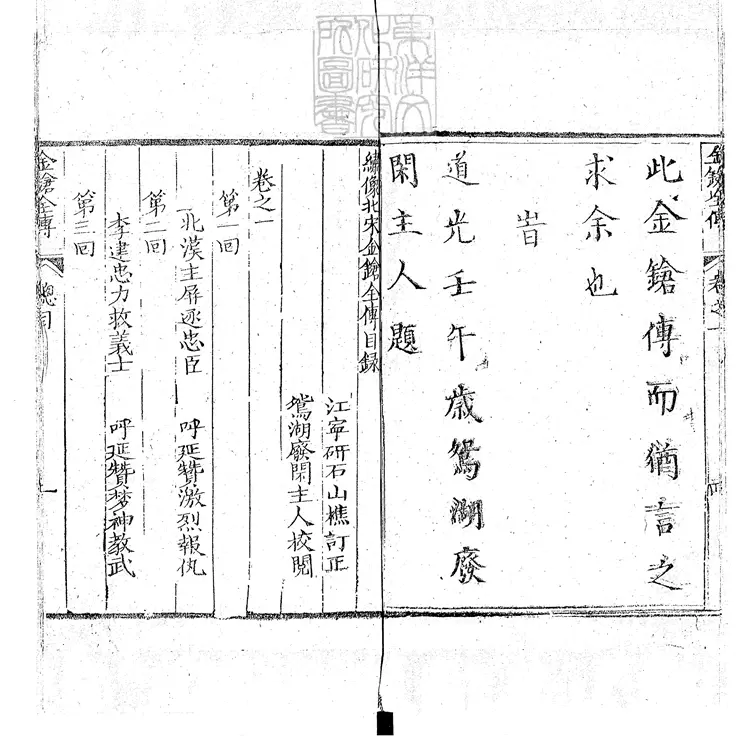 金鎗全傳 卷之一
此金鎗傳而猶言之
求余也
旹
道光壬午歲鴛湖廢
閑主人題
東洋文化研究所圖書
繡像北宋金鎗全傳目錄
江寜研石山樵訂正
鴛湖廢閑主人校閱
卷之一
第一回
北漢主屏逐忠臣 呼延贊激烈報仇
第二回
李建忠力救義士 呼延贊梦神教武
第三回
金鎗全傳 總目 一